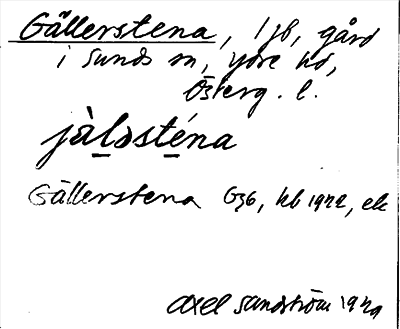 Gällerstena, 1 jb, gård
i Sunds sn, Ydre hd,
Österg. l.
jàləsténa
Gällerstena G36, kb 1922, ek
Axel Sandström 1929